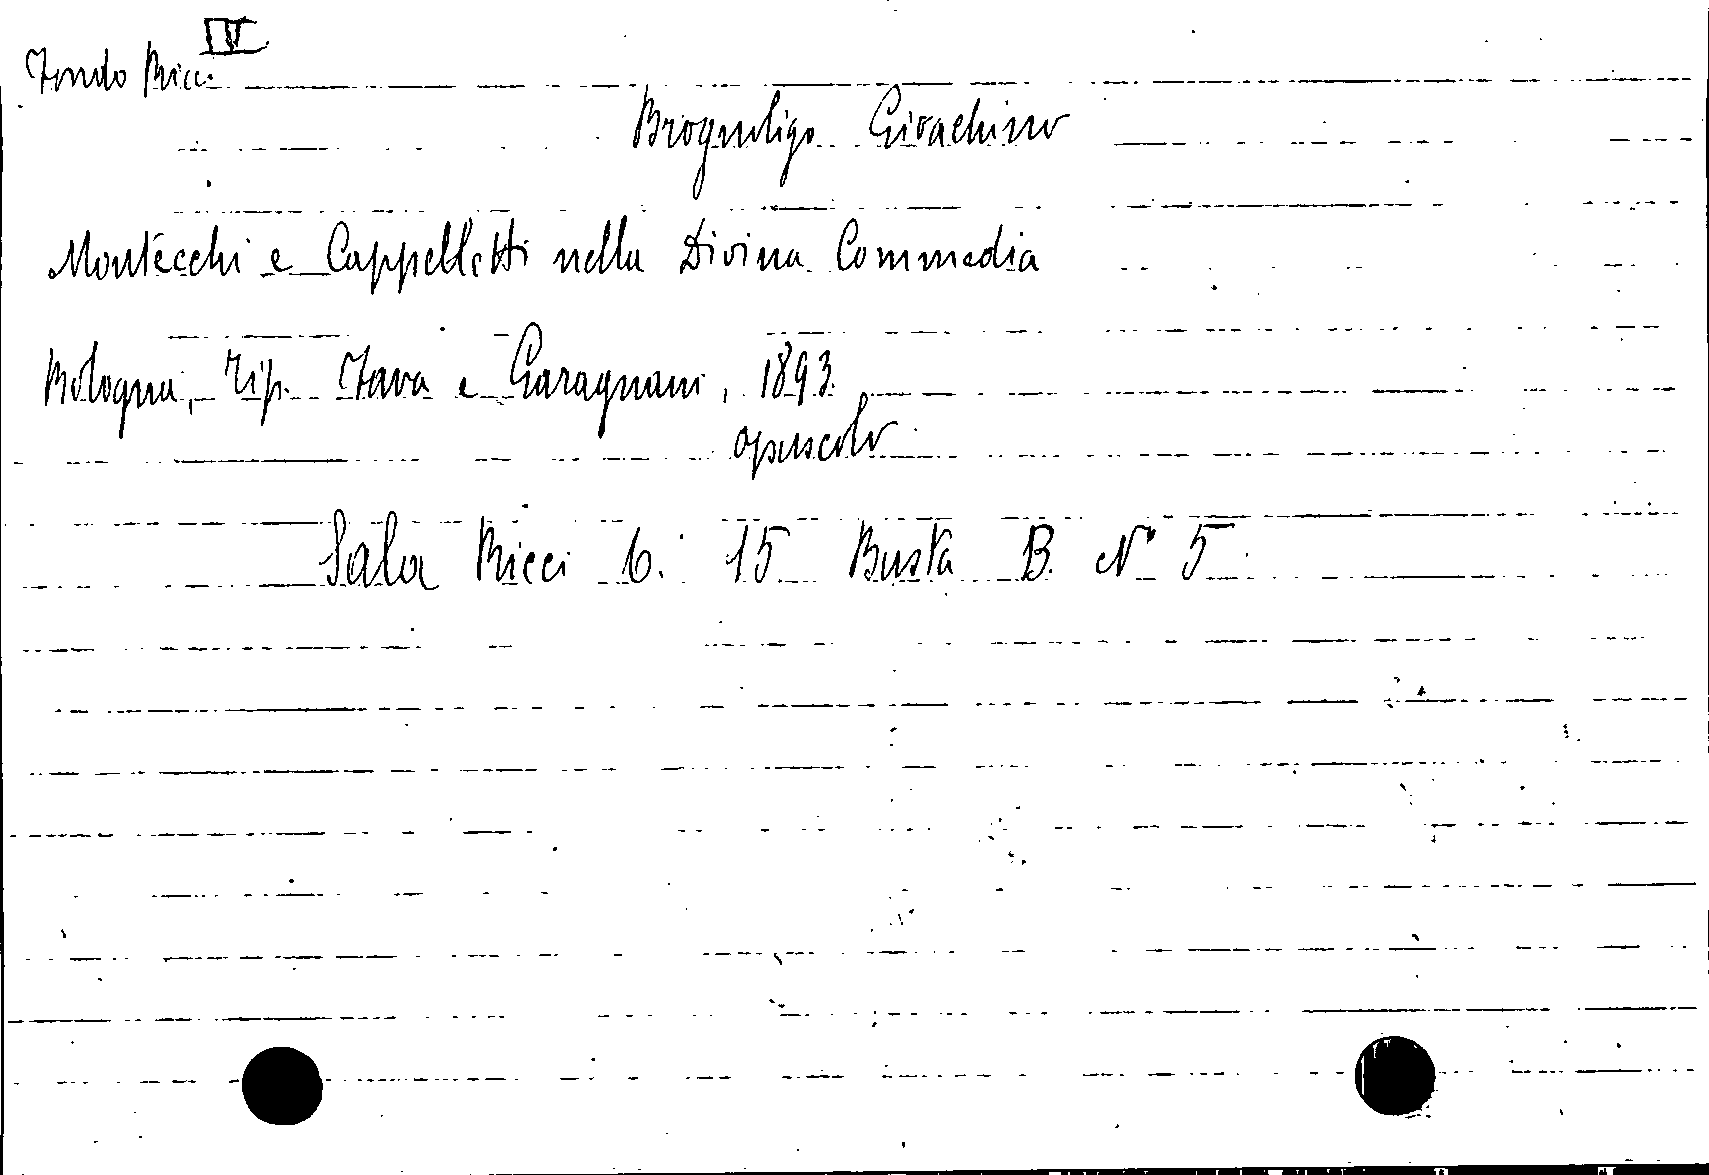 IV
Fondo Ricci
Brognoligo Gioachino
Montecchi e Cappelletti nella Divina Commedia
Bologna, Tip. Fava e Garagnani, 1893.
opuscolo
Sala Ricci 6. 15 Busta B. N° 5.